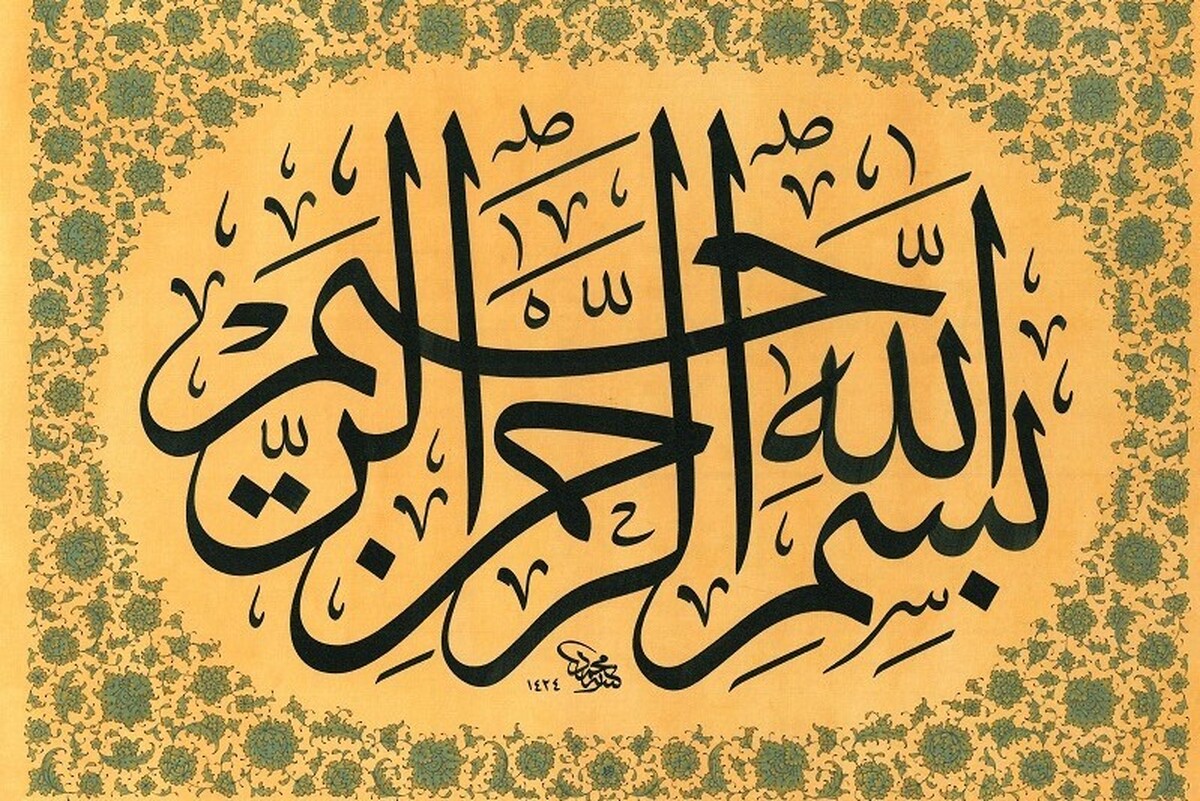 بِسْمِ اللّٰهِ الرَّحْمٰنِ الرَّحِيْمِ
١٤٢٤